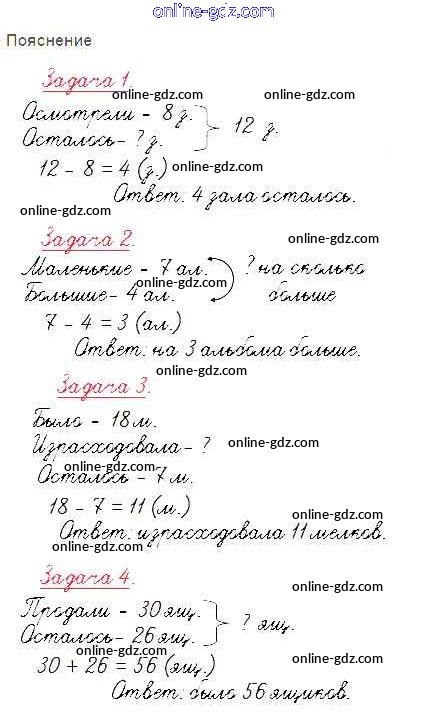 online-gdz.com
Пояснение
Задача 1.
online-gdz.com online-gdz.com
Осмотрели - 8 з.
Осталось - ? з. 12 з.
12 - 8 = 4 (з.) online-gdz.com
Ответ: 4 зала осталось.
online-gdz.com
Задача 2. online-gdz.com
Маленькие - 7 ал. ? на сколько
Большие - 4 ал. больше
online-gdz.com
7 - 4 = 3 (ал.)
Ответ: на 3 альбома больше.
online-gdz.com
Задача 3.
Было - 18 м.
Израсходовала - ? online-gdz.com
Осталось - 7 м.
online-gdz.com
18 - 7 = 11 (м.) online-gdz.com
Ответ: израсходовала 11 мелков.
online-gdz.com
Задача 4. online-gdz.com
Продали - 30 ящ.
Осталось - 26 ящ. ? ящ.
30 + 26 = 56 (ящ.) online-gdz.com
Ответ: было 56 ящиков.
online-gdz.com